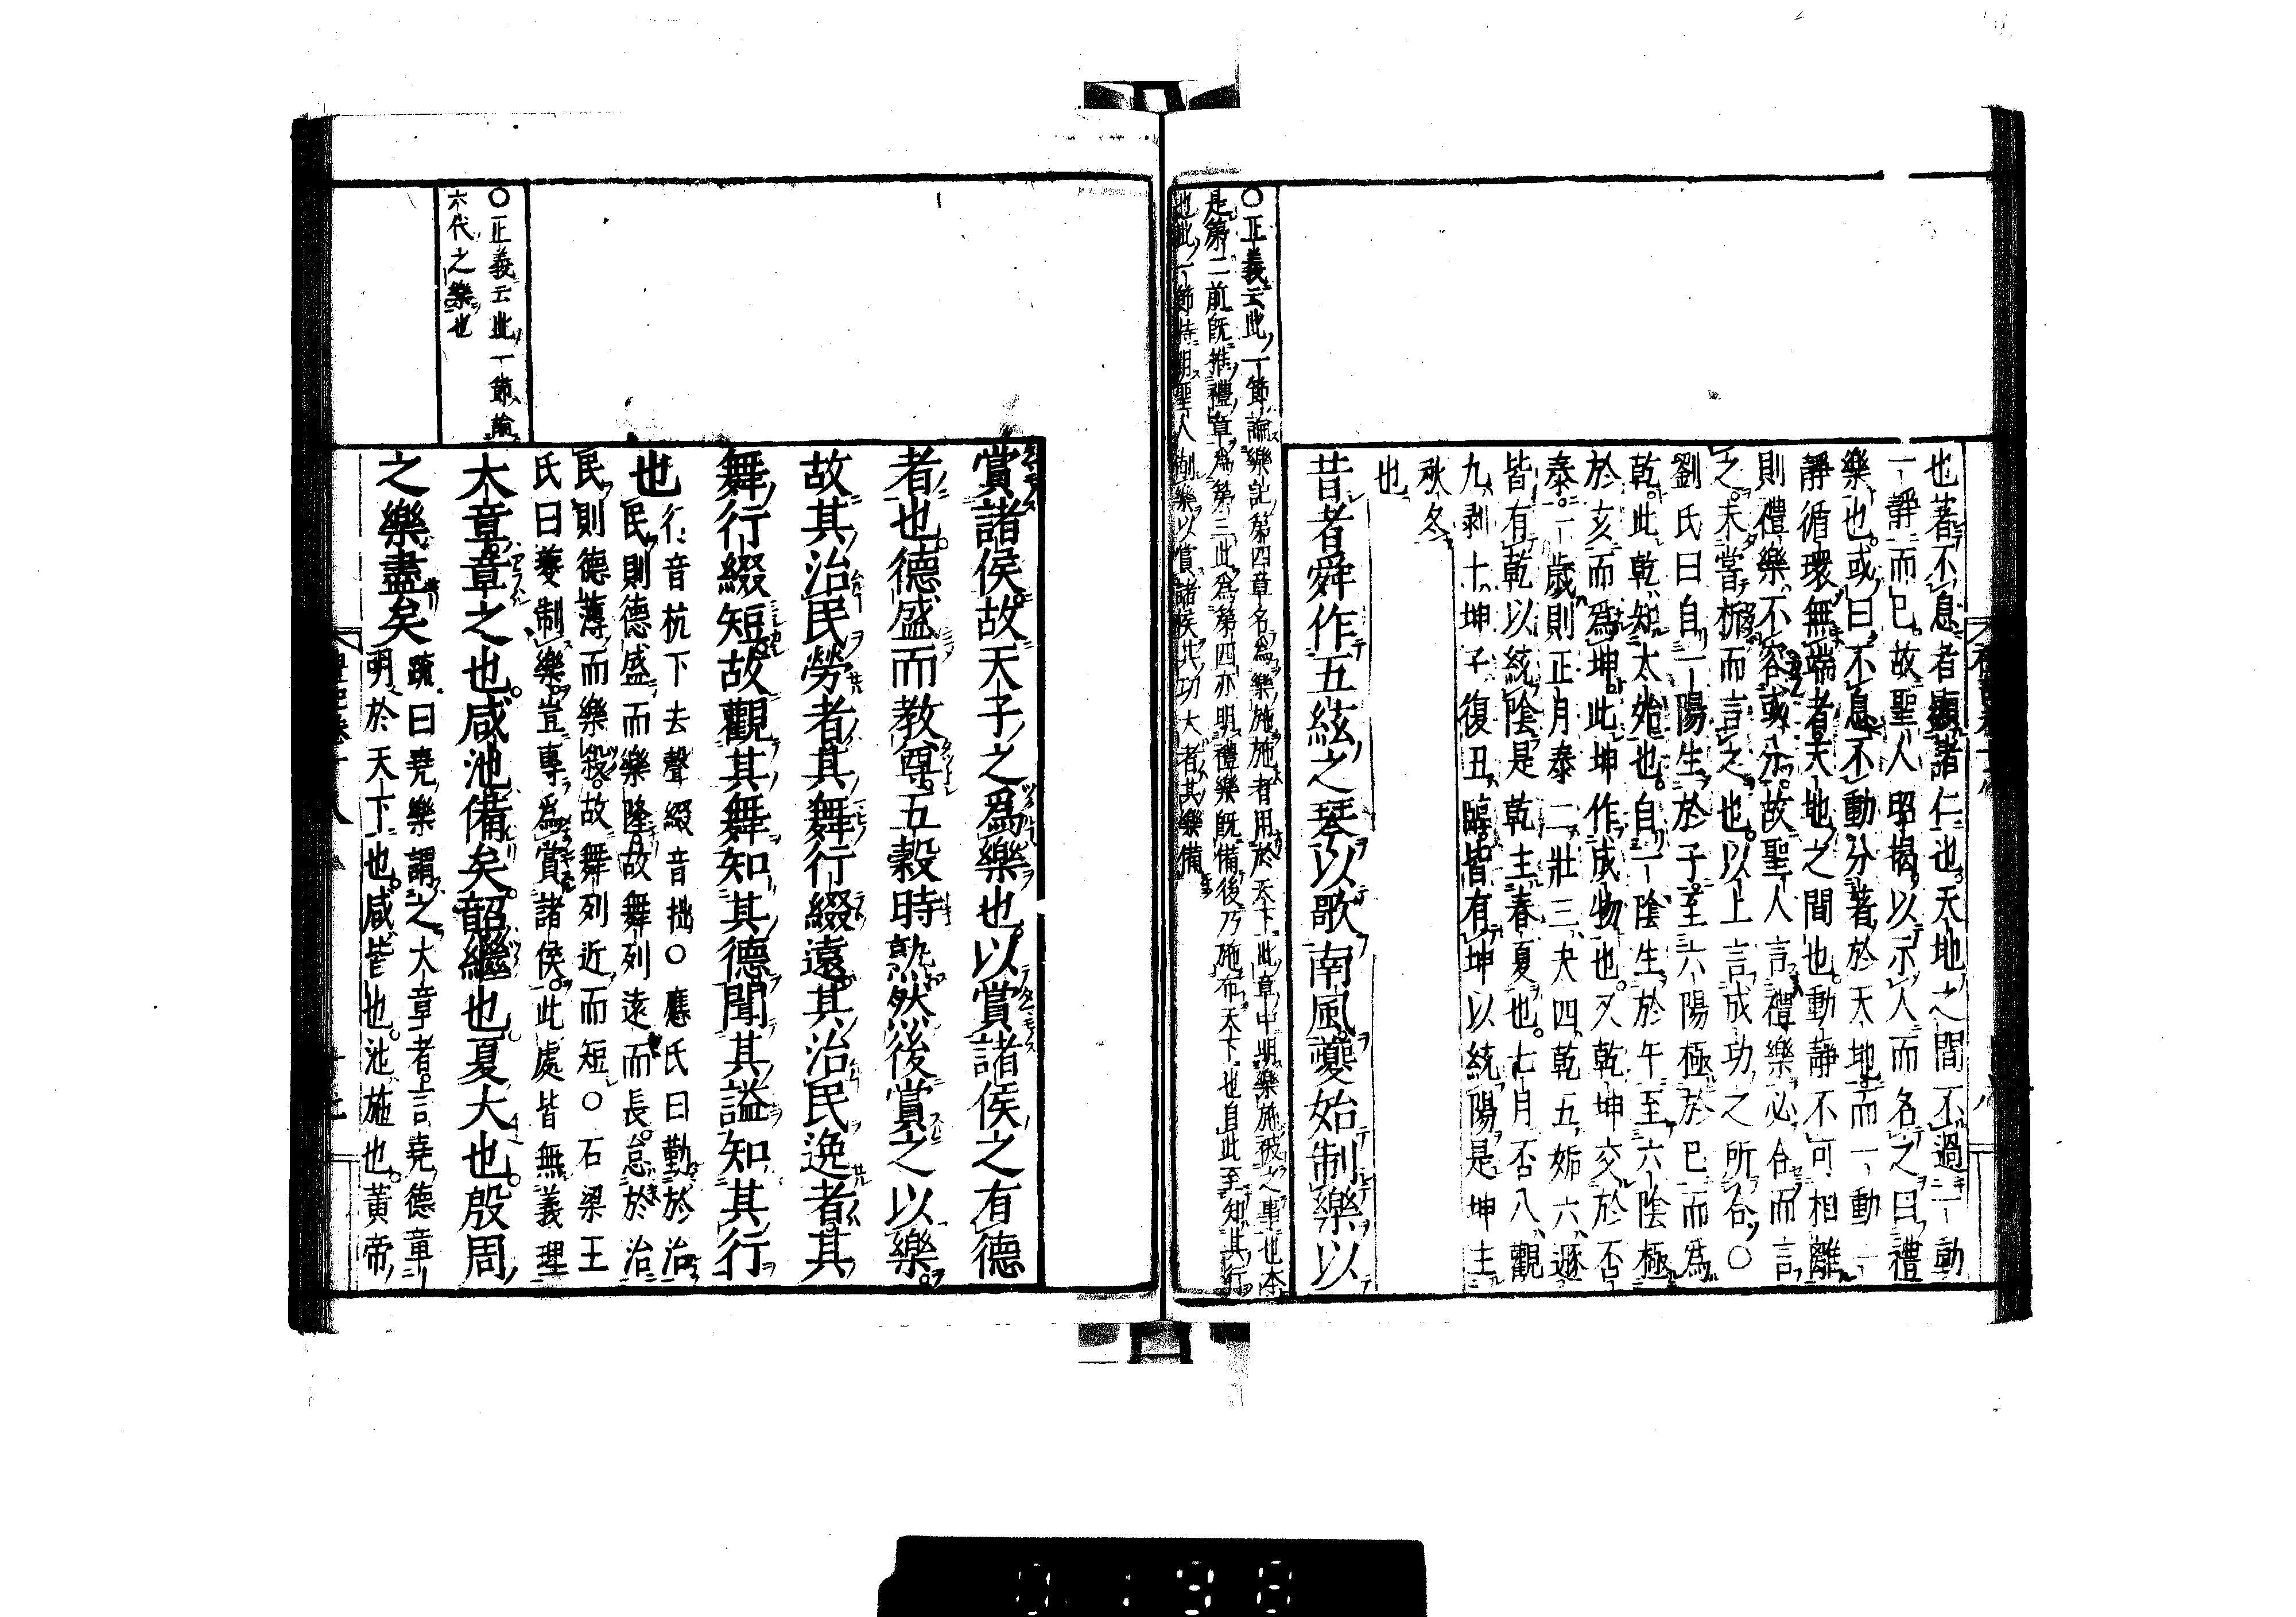 也著不息者顯諸仁也天地之間不過一動
一靜而已故聖人昭揭以示人而名之曰禮
樂也或曰不息不動分著於天地而一動一
靜循環無端者天地之間也動靜不可相離
則禮樂不容或分故聖人言禮樂必合而言
之未嘗析而言之也以上言成功之所合○
劉氏曰自一陽生於子至六陽極於巳而爲
乾此乾知太始也自一陰生於午至六陰極
於亥而爲坤此坤作成物也又乾坤交於否
泰一歲則正月泰二壯三夬四乾五姤六遯
皆有乾以統陰是乾主春夏也七月否八觀
九剥十坤子復丑臨皆有坤以統陽是坤主
秋冬
也
昔者舜作五絃之琴以歌南風夔始制樂以
○正義云此一節論樂記第四章名爲樂施施者用於天下此章中明樂施被之事也本
是第二前既推禮章爲第三此爲第四亦明禮樂既備後乃施布天下也自此至知其行
也此一節特明聖人制樂以賞諸侯其功大者其樂備
賞諸侯故天子之爲樂也以賞諸侯之有德
者也德盛而教尊五穀時熟然後賞之以樂
故其治民勞者其舞行綴遠其治民逸者其
舞行綴短故觀其舞知其德聞其謚知其行
也
行音杭下去聲綴音拙○應氏曰勤於治
民則德盛而樂隆故舞列遠而長怠於治
民則德薄而樂殺故舞列近而短○石梁王
氏曰夔制樂豈專爲賞諸侯此處皆無義理
○正義云此一節論
六代之樂也
大章章之也咸池備矣韶繼也夏大也殷周
之樂盡矣
疏曰堯樂謂之大章者言堯德章
明於天下也咸皆也池施也黃帝